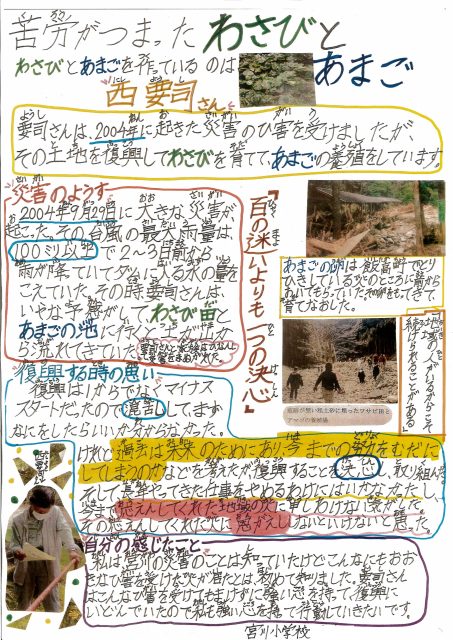 苦労がつまったわさびと
あまご
わさびとあまごを作っているのは
西 要司さん
要司さんは、2004年に起きた災害のひ害を受けましたが、
その土地を復興してわさびを育て、あまごの養殖をしています。
災害のようす
2004年9月29日に大きな災害が
起こった。その台風の最大雨量は、
100ミリ以上
2〜3日前から
雨が降っていてダムに入る水の量を
こえていた。その時要司さんは、
いやな予感がして、わさび田と
あまごの池に行くと
流れてきていた
『百の迷いよりも一つの決心』
あまごの卵は、飯高町でとり
ひきしている
育てなおした。
土地の人がいるからこそ
続けられることがある
復興する時の思い
復興は1からでなく、マイナス
スタートだったので、苦労して、まず
なにをしたらいいか分からなかった。
けれど過去は未来のためにあり、今までの努力をむだに
してしまうのかなどを考えたが、復興することを決心し、取り組んだ。
そして長年やってきた仕事をやめるわけにはいかなかったし、
今まで応えんしてくれた地域の人に申しわけない気がした。
その応えんしてくれた人に恩がえししないといけないと思った。
自分の感じたこと
私は、宮川の災害のことは知っていたけどこんなにもおお
きなひ害を受けた人が居たとは、初めて知りました。要司さん
はこんなひ害を受けてもまけずに強い心を持って、復興に
いどんでいたので私も強い心を持って行動していきたいです。
宮川小学校